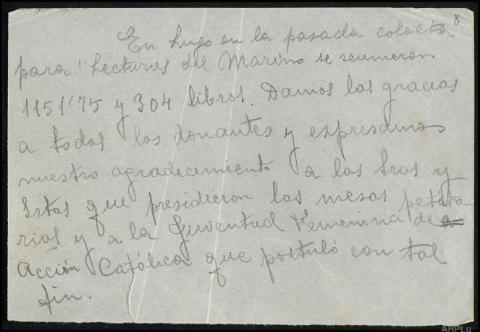 8
En Lugo en la pasada colecta
para "Lecturas del Marino se reunieron
1151'75 y 304 libros. Damos las gracias
a todos los donantes y expresamos
nuestro agradecimiento a las Sras y
Srtas que presidieron las mesas petito-
rias y a la Juventud Femenina de
Acción Católica que postuló con tal
fin.
AHPLu